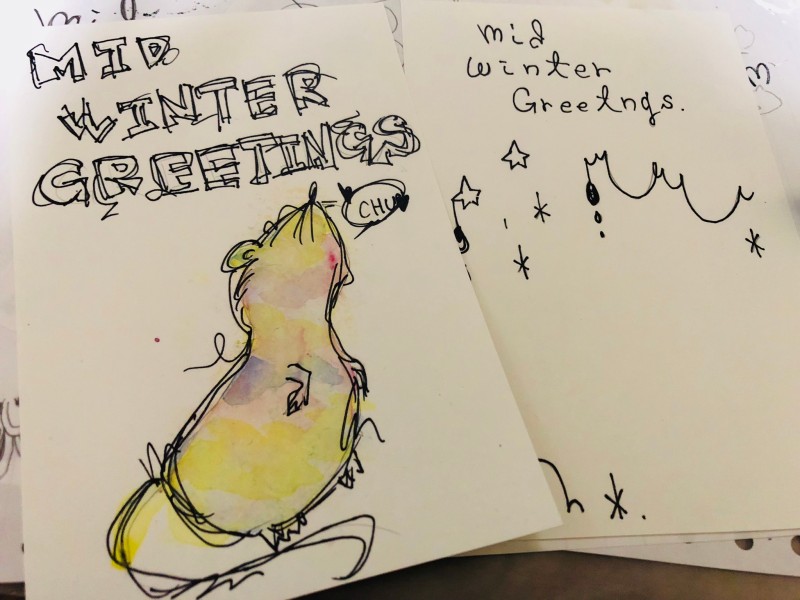 MID
WINTER
GREETINGS
CHU
mid
winter
Greetngs.